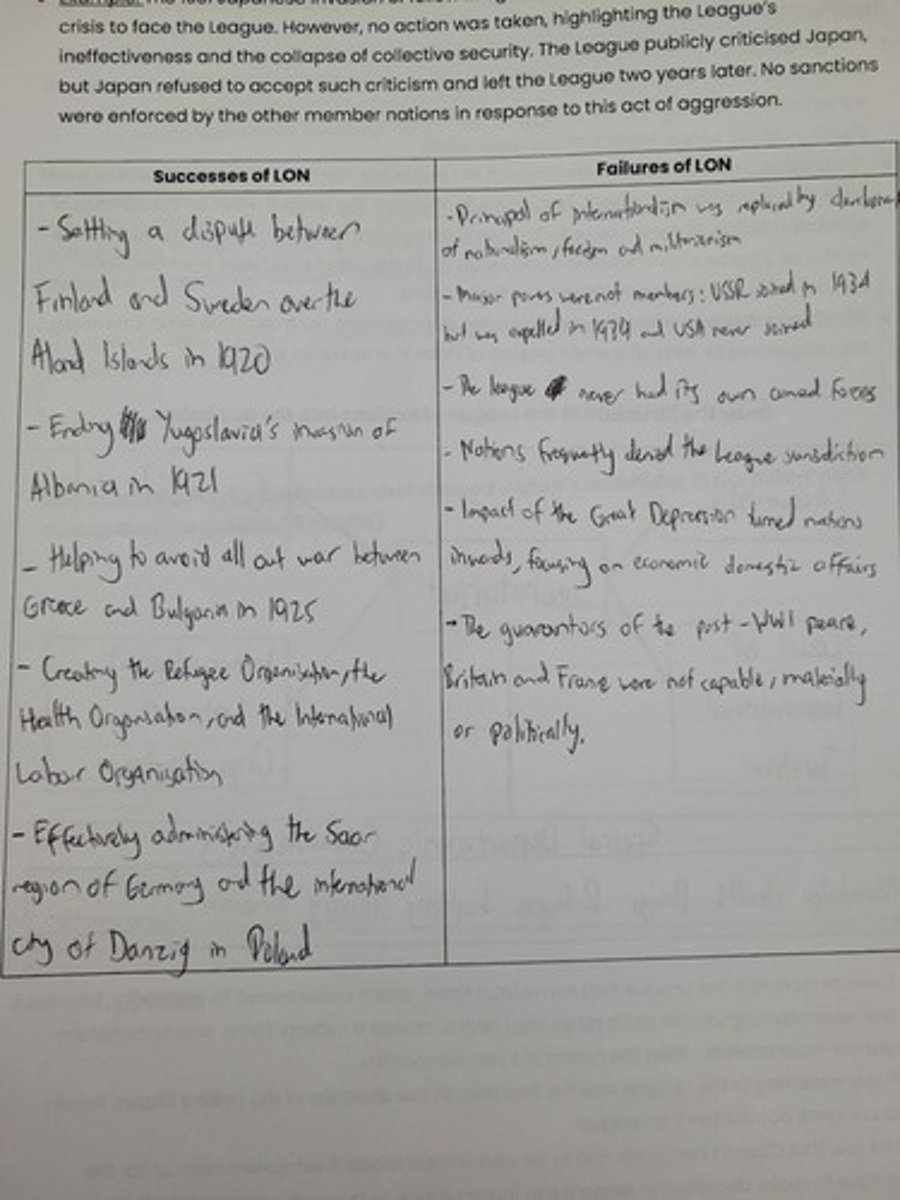 crisis to face the League. However, no action was taken, highlighting the League's
ineffectiveness and the collapse of collective security. The League publicly criticised Japan,
but Japan refused to accept such criticism and left the League two years later. No sanctions
were enforced by the other member nations in response to this act of aggression.
Successes of LON
- Settling a dispute between
Finland and Sweden over the
Aland Islands in 1920
- Ending Yugoslavia's invasion of
Albania in 1921
- Helping to avoid all out war between
Greece and Bulgaria in 1925
- Creating the Refugee Organisation, the
Health Organisation, and the International
Labour Organisation
- Effectively administering the Saar
region of Germany and the international
city of Danzig in Poland
Failures of LON
- Principall of internationalism was replaced by
of nationalism, facism and militarianism
- Major powers were not members: USSR joined in 1934
but was expelled in 1939 and USA never joined
- The league never had its own armed forces
- Nations frequently denied the League jurisdiction
- Impact of the Great Depression turned nations
inwards, focusing on economic domestic affairs
- The guarantors of the post-WWI peace,
Britain and France were not capable, materially
or politically.